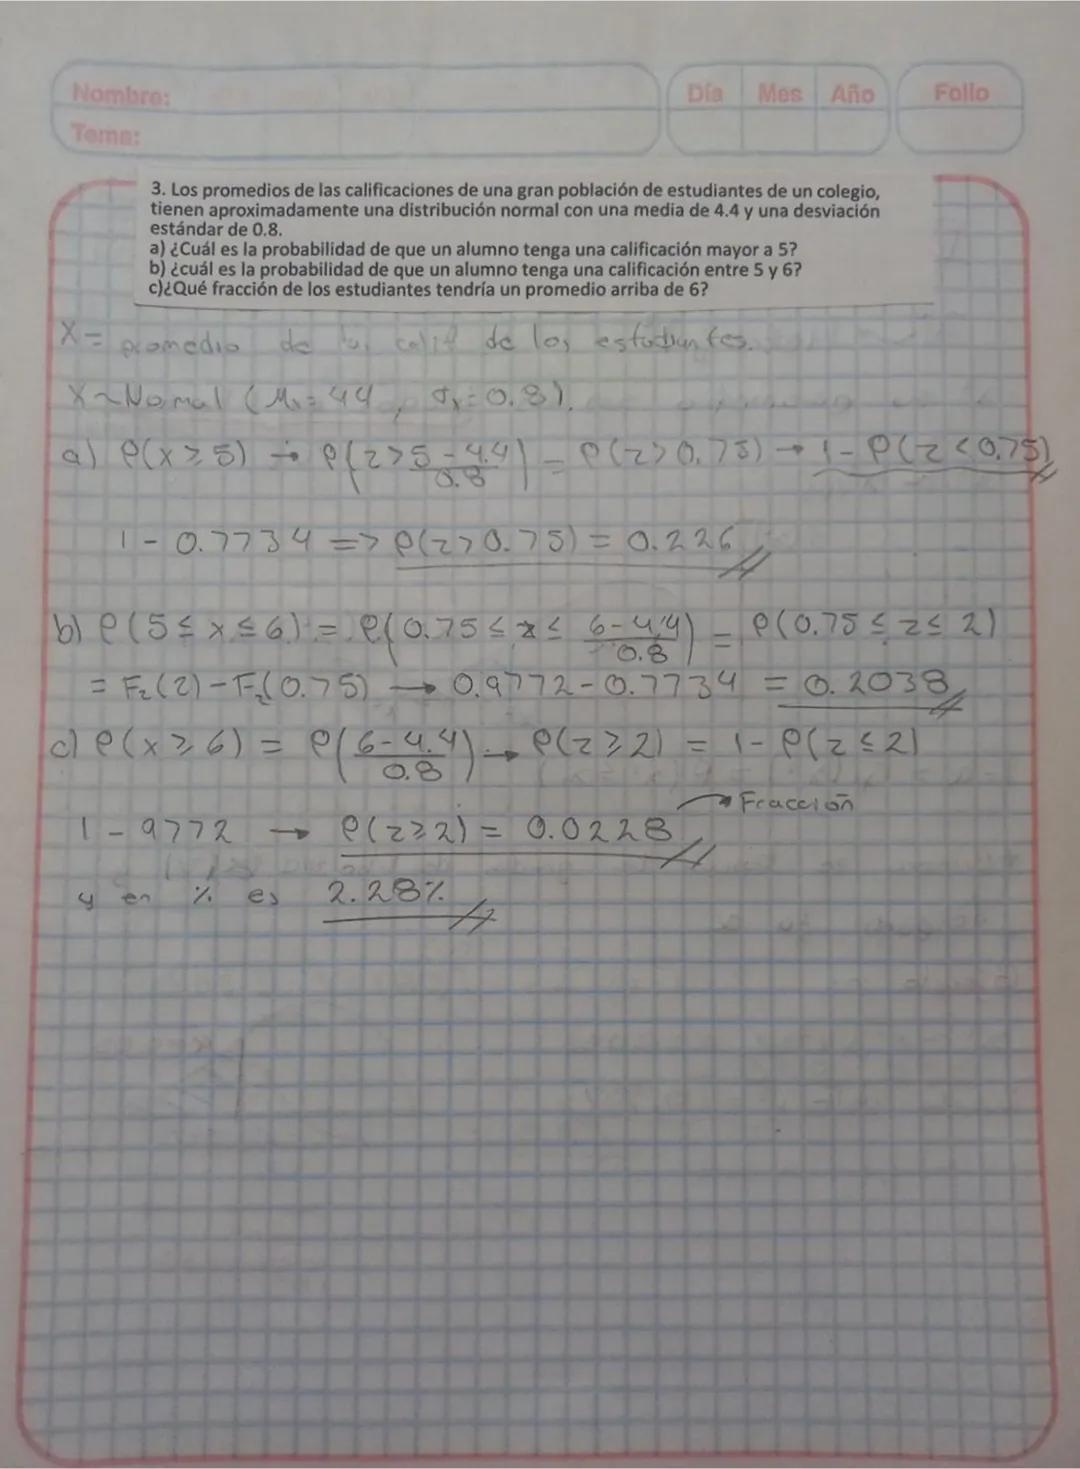 Nombre:
Día Mes Año Folio
Tema:
3. Los promedios de las calificaciones de una gran población de estudiantes de un colegio,
tienen aproximadamente una distribución normal con una media de 4.4 y una desviación
estándar de 0.8.
a) ¿Cuál es la probabilidad de que un alumno tenga una calificación mayor a 5?
b) ¿cuál es la probabilidad de que un alumno tenga una calificación entre 5 y 6?
c)¿Qué fracción de los estudiantes tendría un promedio arriba de 6?
X = promedio de las calif de los estudiantes.
X~Normal (Mx= 44, σx=0.8).
a) P(x≥5) → P(z>5-4.4/0.8) = P(z>0.75) → 1-P(z<0.75)
1-0.7734 => P(z>0.75) = 0.226
b) P(5≤x≤6) = P(0.75≤z≤ 6-4.4/0.8) = P(0.75≤z≤2)
= Fz(2)-Fz(0.75) → 0.9772-0.7734 = 0.2038
c) P(x≥6) = P(6-4.4/0.8) → P(z≥2) = 1-P(z≤2)
→ Fracción
1-9772 → P(z≥2) = 0.0228
y en % es 2.28%